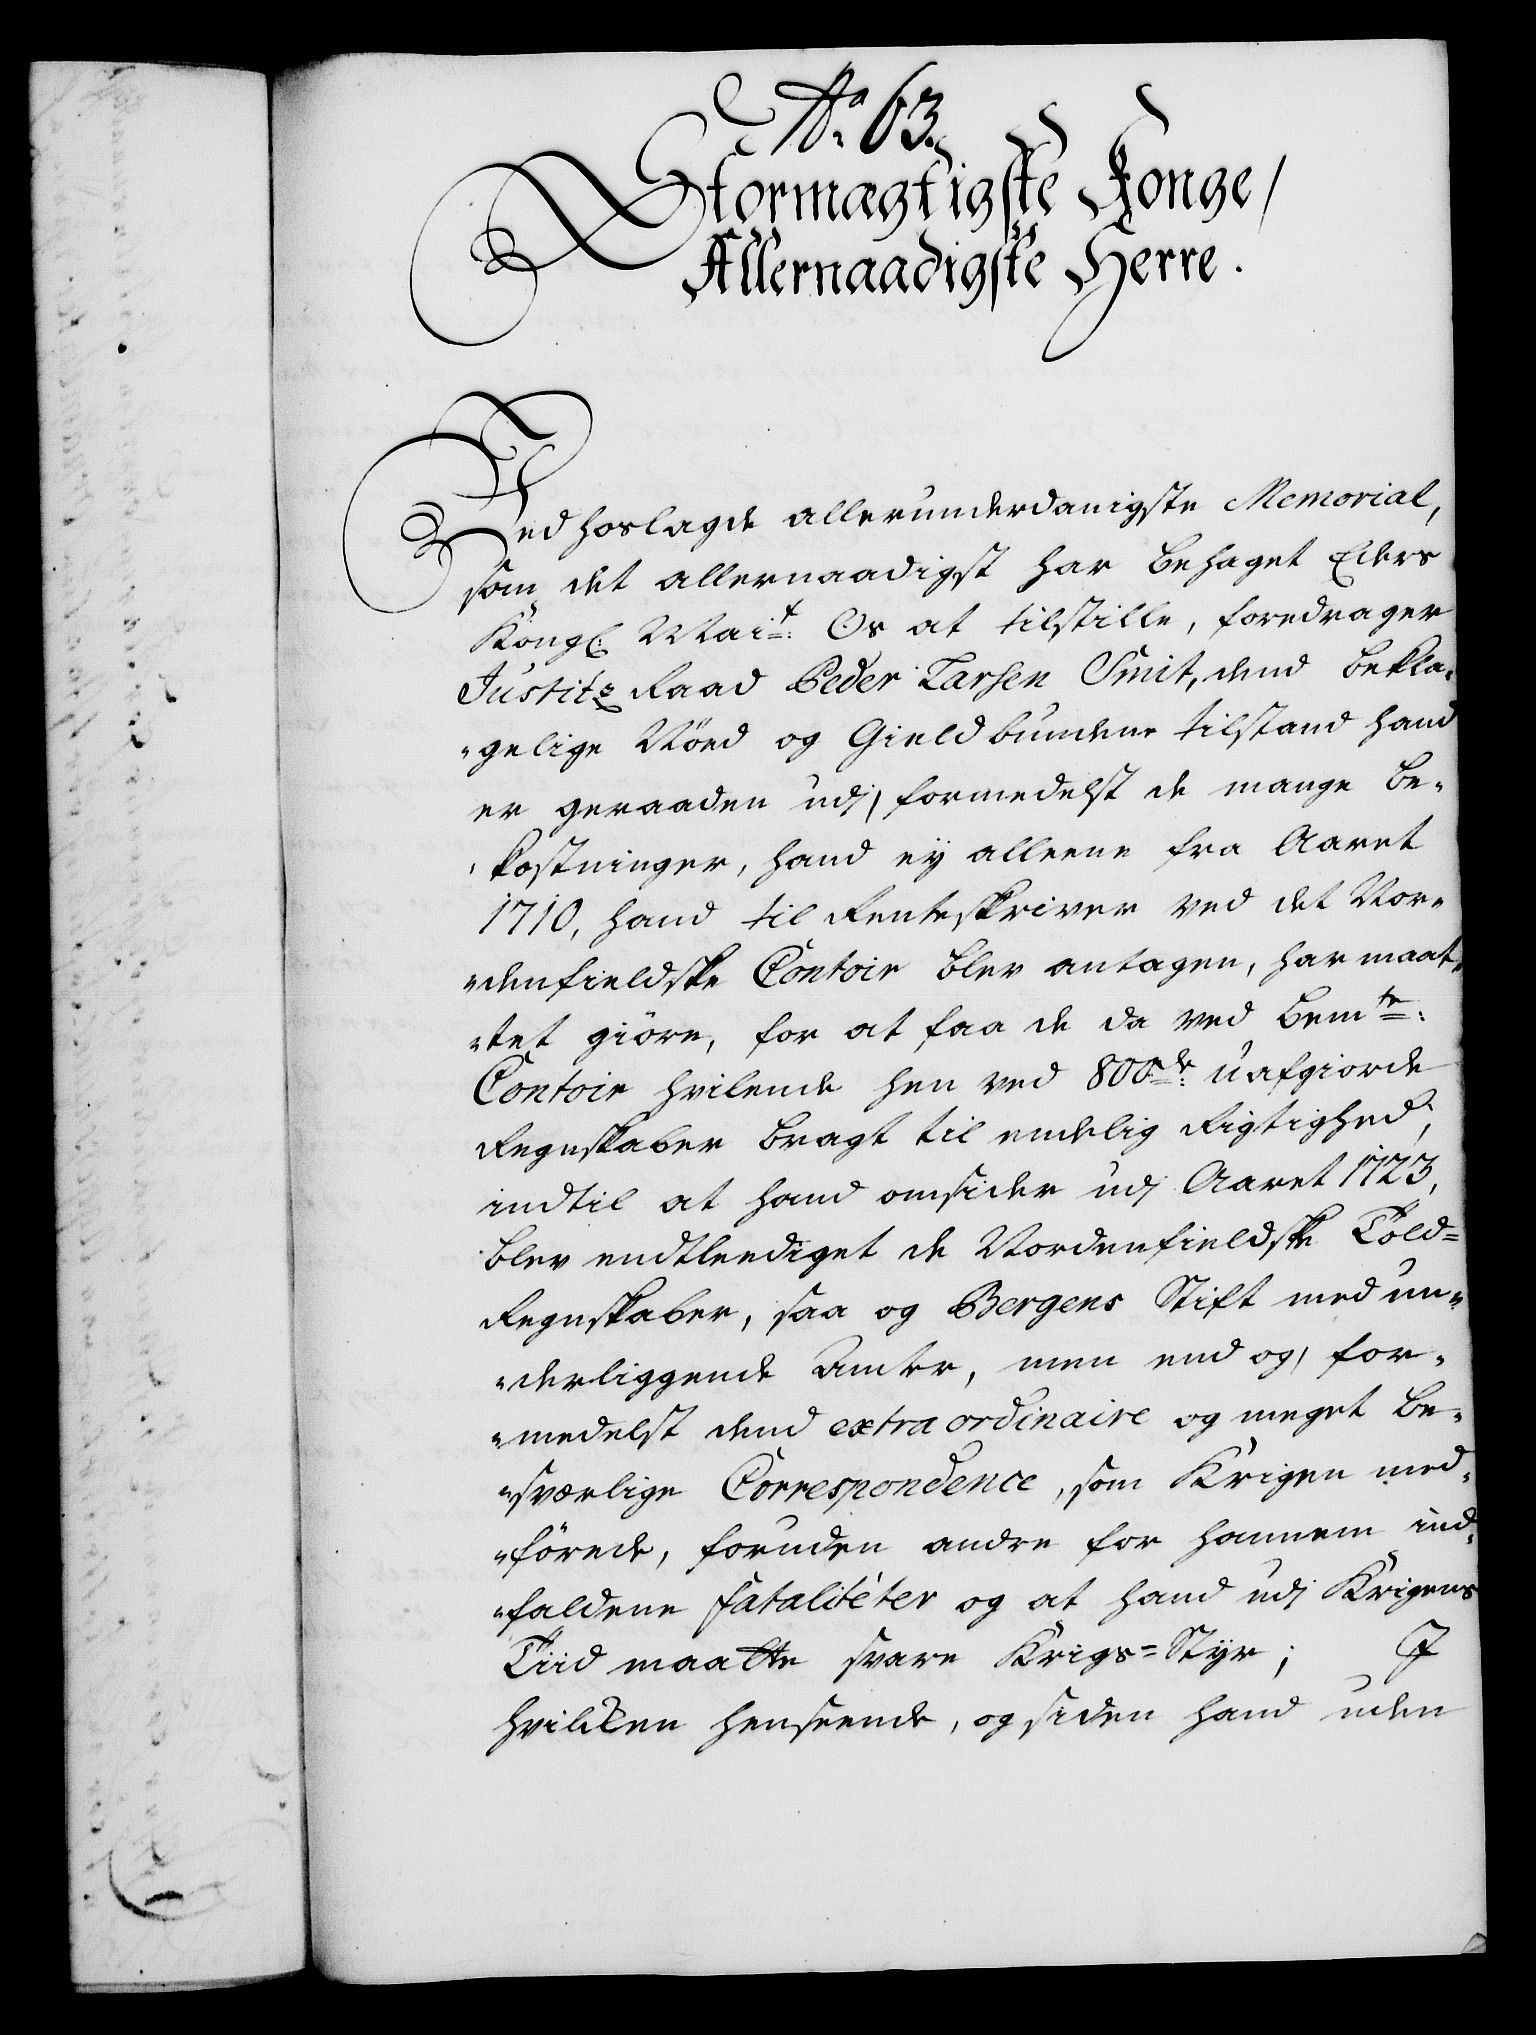 No. 63.
Stormægtigste Konge/
Allernaadigste Herre.
Ved hoslagde allerunderdanigste Memorial,
som det allernaadigst har behaget Eders
Kongl: Mait: Os at tilstille, foredrager
Justitz Raad Peder Larsen Smit, dend bekla-
-gelige Nöed og Gieldbundene tilstand hand
er geraaden udj, formedelst de mange be-
-kostninger, hand eÿ alleene fra Aaret
1710, hand til Renteskriver ved det Nor-
-denfieldske Contoir blev antagen, har maat-
-tet giöre, for at faa de da ved bemte:
Contoir hvilende hen ved 800de: uafgiorde
Regnskaber bragt til endelig Rigtighed,
indtil at hand omsider udj Aaret 1723,
blev endtleediget de Nordenfieldske Told=
Regnskaber, saa og Bergens Stift med un-
-derliggende Amter, men end og, for-
-medelst dend extra ordinaire og meget be-
-sværlige Correspondence, som Krigen med-
-förede, foruden andre for hannem ind-
-faldene fataliteter og at hand udj Krigens
Tiid maatte svare Krigs=Styr; J
hvilken henseende, og siden hand uden